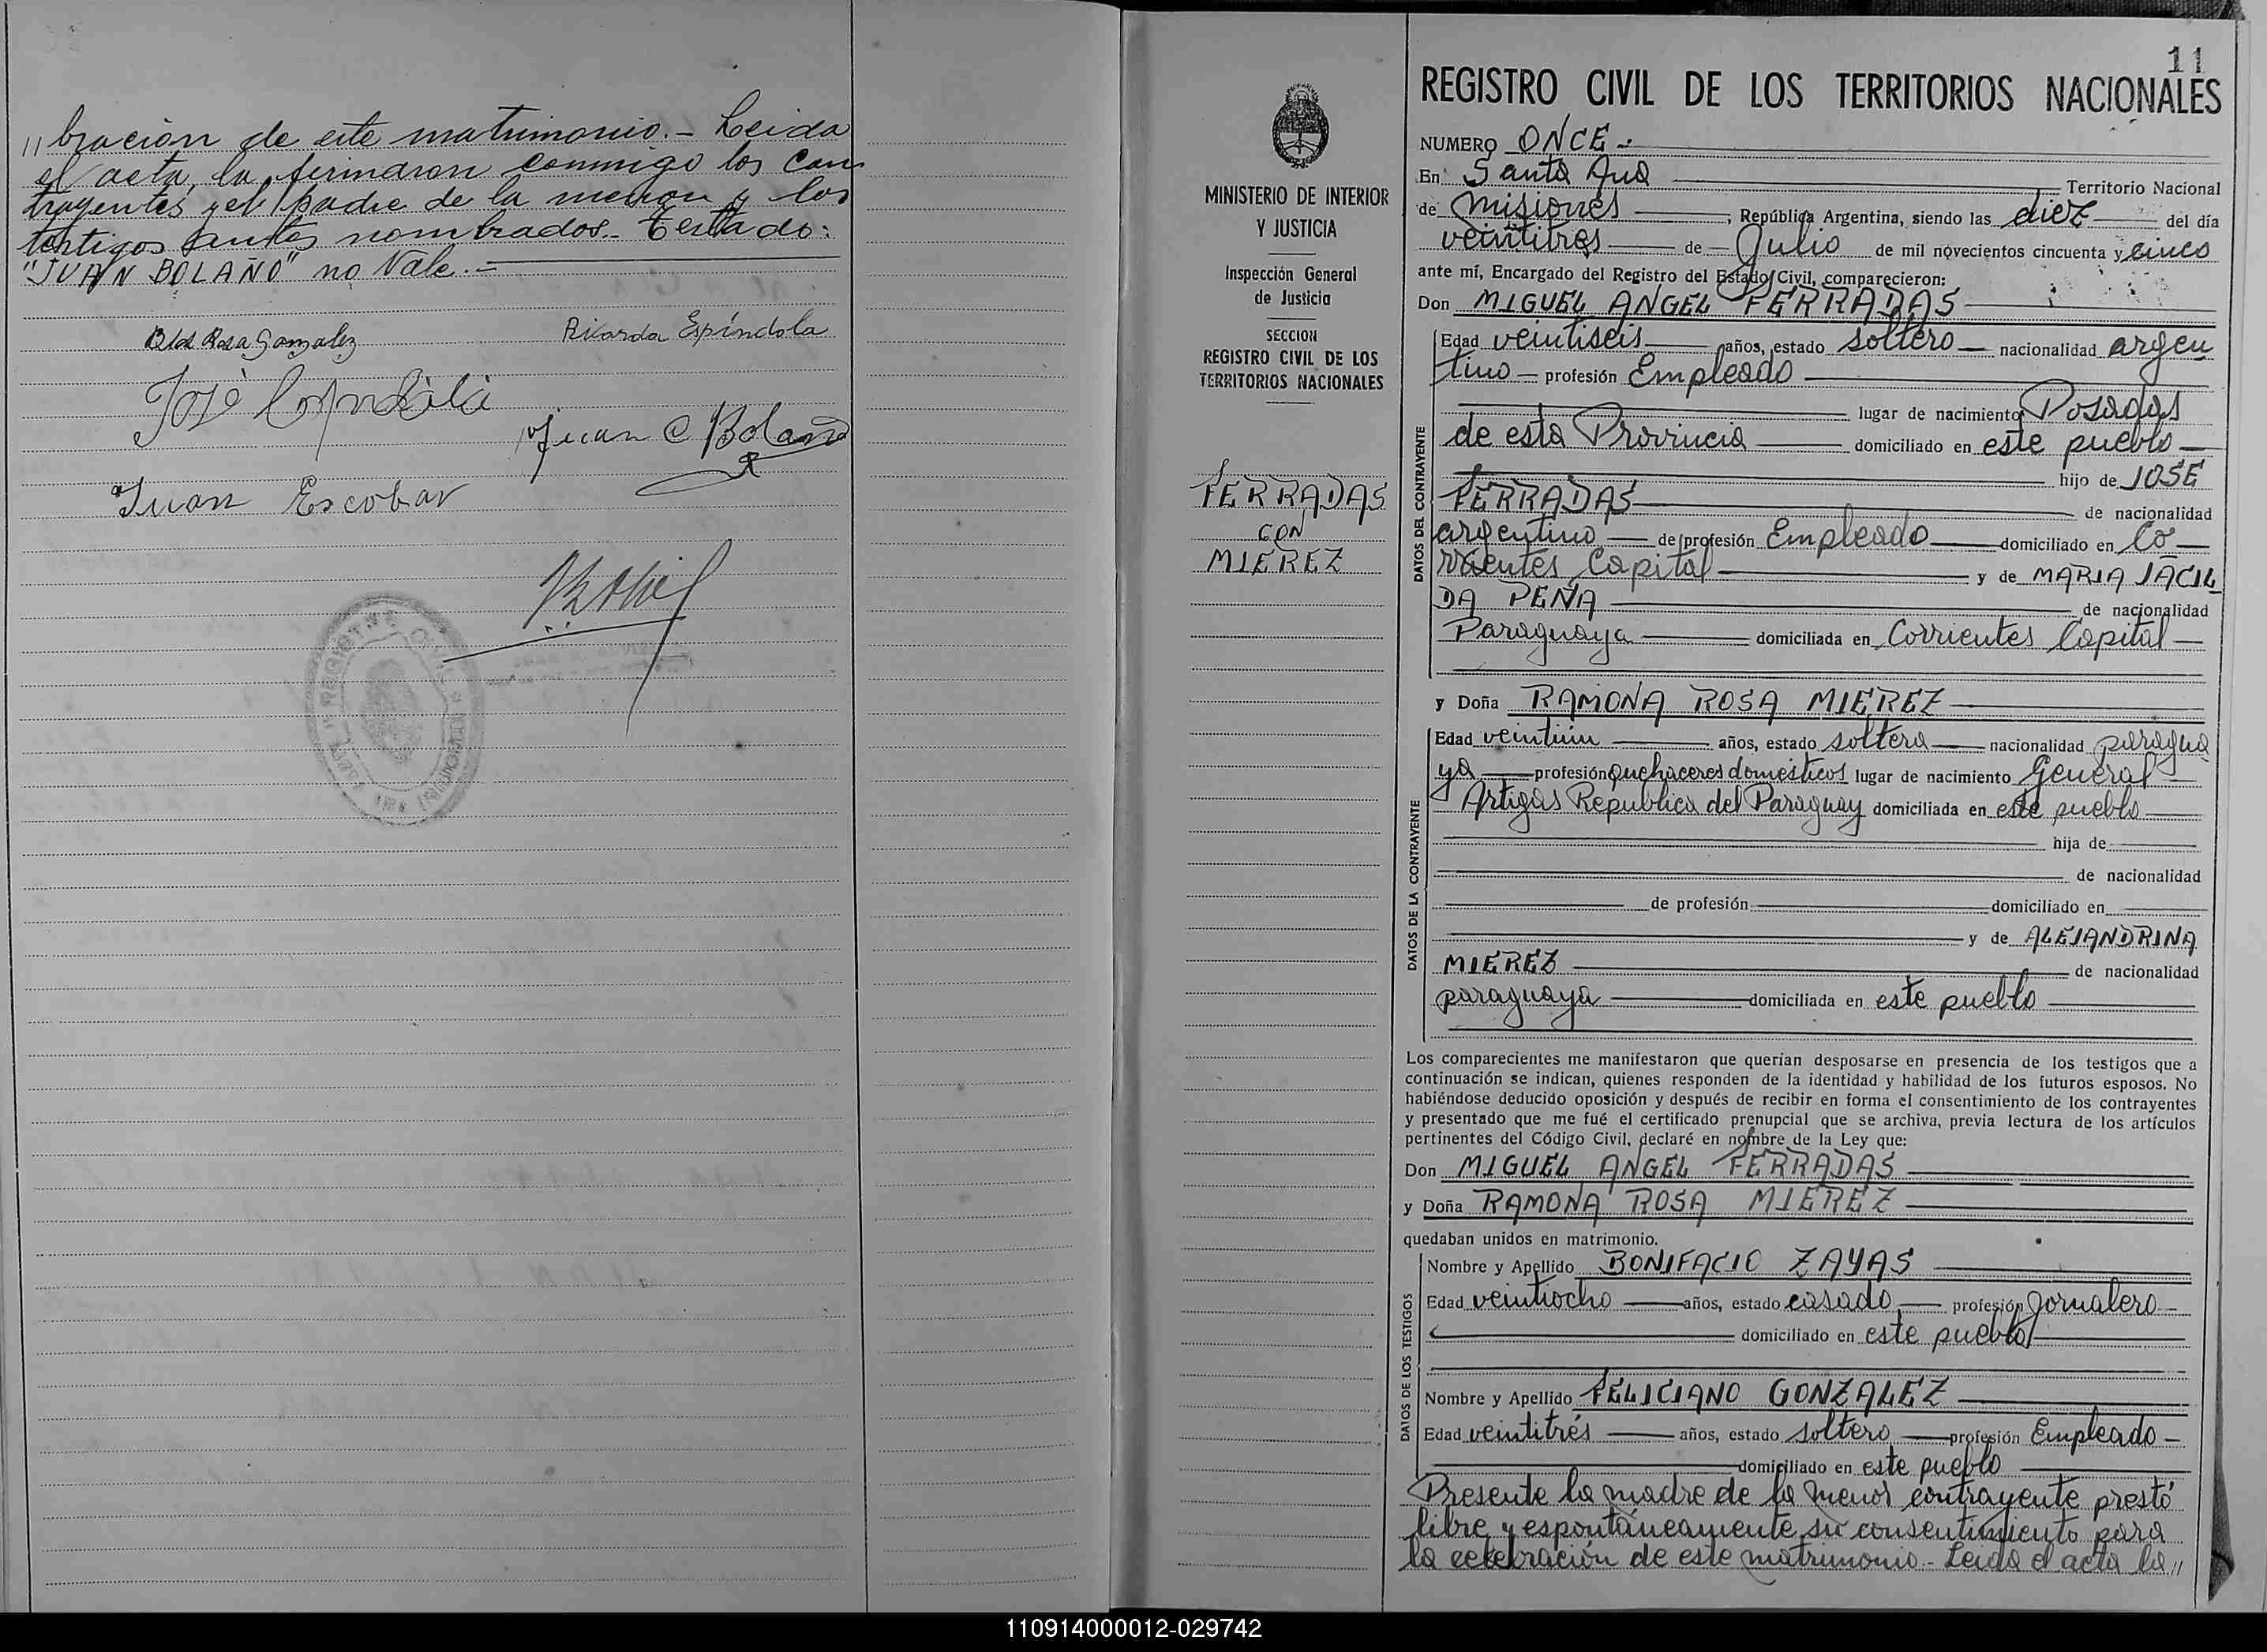 // bración de este matrimonio.- Leida
el acta, la firmaron conmigo los con
trayentes y el padre de la menor y los
testigos antes nombrados.- Testado:
"JUAN BOLAÑO" no Vale.-
Rosa Gonzalez
Ricarda Espíndola
José
Juan C Bolaño
Juan Escobar
REGISTRO CIVIL
11
MINISTERIO DE INTERIOR
Y JUSTICIA
Inspección General
de Justicia
SECCION
REGISTRO CIVIL DE LOS
TERRITORIOS NACIONALES
FERRADAS
CON
MIEREZ
REGISTRO CIVIL DE LOS TERRITORIOS NACIONALES
NUMERO ONCE.-
En Santa Ana Territorio Nacional
de Misiones, República Argentina, siendo las diez del día
veintitres de Julio de mil novecientos cincuenta y cinco
ante mí, Encargado del Registro del Estado Civil, comparecieron:
Don MIGUEL ANGEL FERRADAS
DATOS DEL CONTRAYENTE
Edad veintiseis años, estado soltero nacionalidad argen
tino profesión Empleado
lugar de nacimiento Posadas
de esta Provincia domiciliado en este pueblo
hijo de JOSE
FERRADAS de nacionalidad
argentino de profesión Empleado domiciliado en Co
rrientes Capital y de MARIA JACIL
DA PEÑA de nacionalidad
Paraguaya domiciliada en Corrientes Capital
y Doña RAMONA ROSA MIEREZ
DATOS DE LA CONTRAYENTE
Edad veintiún años, estado soltera nacionalidad paragua
ya profesión quehaceres domésticos lugar de nacimiento General
Artigas Republica del Paraguay domiciliada en este pueblo
hija de
de nacionalidad
de profesión domiciliado en
y de ALEJANDRINA
MIEREZ de nacionalidad
paraguaya domiciliada en este pueblo
Los comparecientes me manifestaron que querían desposarse en presencia de los testigos que a
continuación se indican, quienes responden de la identidad y habilidad de los futuros esposos. No
habiéndose deducido oposición y después de recibir en forma el consentimiento de los contrayentes
y presentado que me fué el certificado prenupcial que se archiva, previa lectura de los artículos
pertinentes del Código Civil, declaré en nombre de la Ley que:
Don MIGUEL ANGEL FERRADAS
y Doña RAMONA ROSA MIEREZ
quedaban unidos en matrimonio.
DATOS DE LOS TESTIGOS
Nombre y Apellido BONIFACIO ZAYAS
Edad veintiocho años, estado casado profesión Jornalero
domiciliado en este pueblo
Nombre y Apellido FELICIANO GONZALEZ
Edad veintitrés años, estado soltero profesión Empleado
domiciliado en este pueblo
Presente la madre de la menor contrayente prestó
libre y espontáneamente su consentimiento para
la celebración de este matrimonio.- Leida el acta la //
110914000012-029742